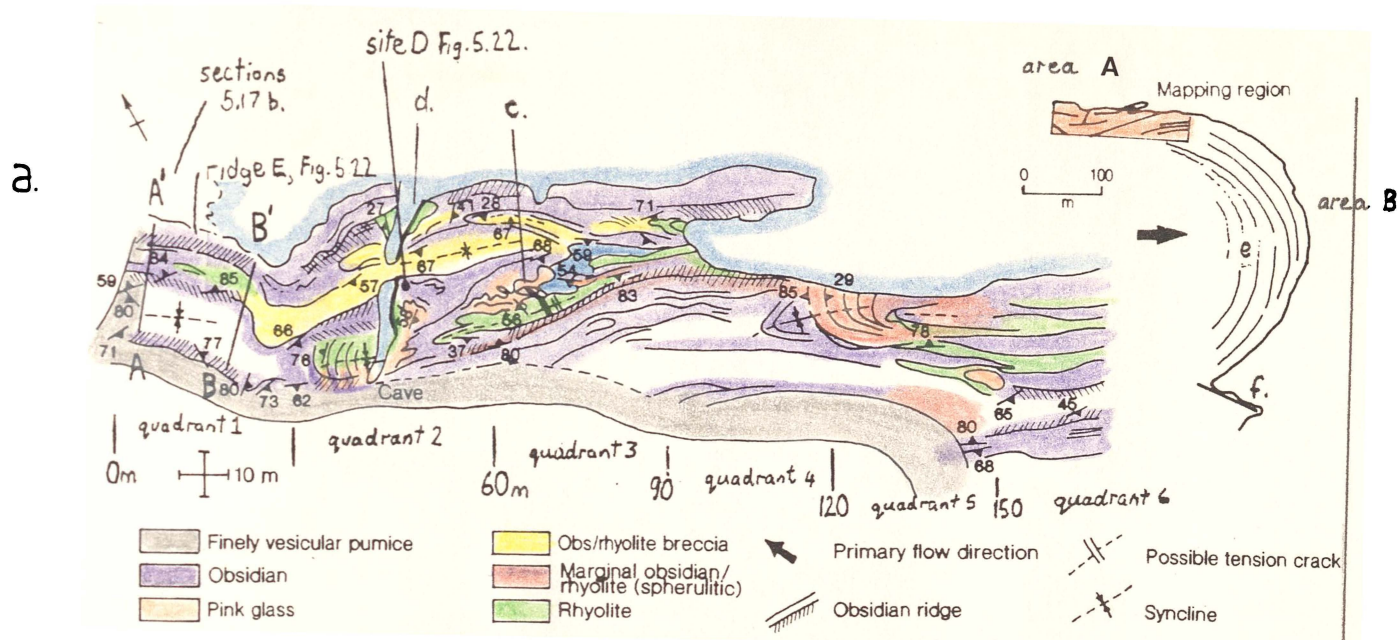 a.
site D Fig.5.22.
sections
5.17 b.
d.
c.
ridge E, Fig.5 22
A'
B'
area A
Mapping region
0 100
m
area B
e
f.
27
41 28
71
67
68
84
85
59
67
59
54
57
80
83
85
29
66
78
71
77
76
37
80
A
B
80
73
62
Cave
65
45
80
68
quadrant 1
quadrant 2
quadrant 3
quadrant 4
quadrant 5
quadrant 6
0m
10 m
60m
90
120
150
Finely vesicular pumice
Obsidian
Pink glass
Obs/rhyolite breccia
Marginal obsidian/
rhyolite (spherulitic)
Rhyolite
Primary flow direction
Obsidian ridge
Possible tension crack
Syncline